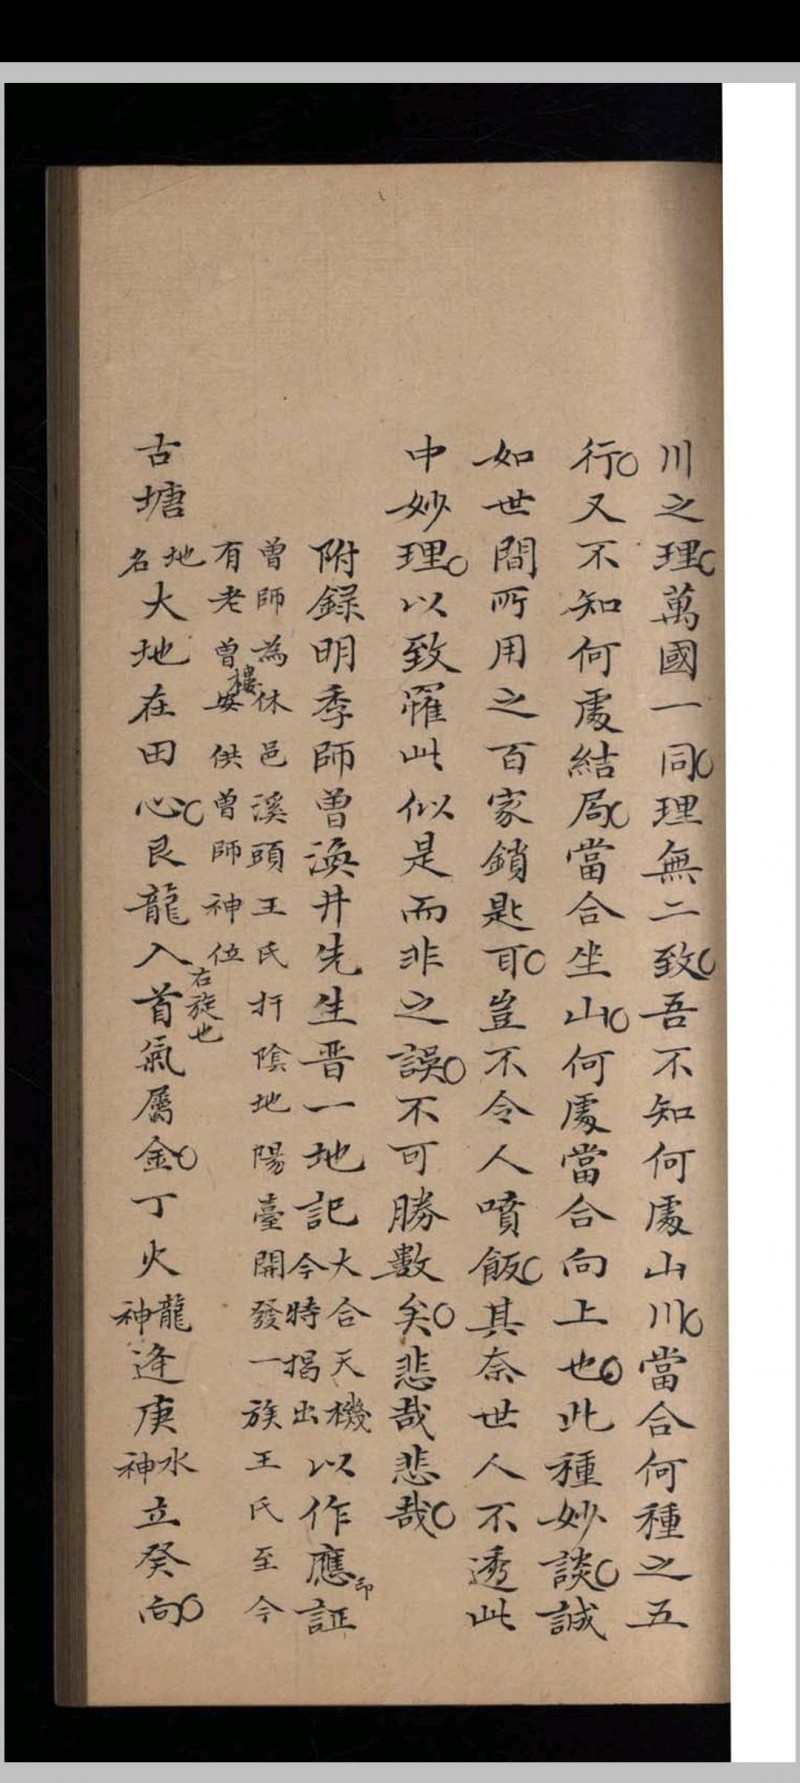 川之理萬國一同理無二致吾不知何處山川當合何種之五
行又不知何處結局當合坐山何處當合向上也此種妙談誠
如世間所用之百家鎖匙耳豈不令人噴飯其奈世人不透此
中妙理以致罹此似是而非之誤不可勝數矣悲哉悲哉
附錄明季師曾渙井先生晋一地記大合天機今特揭出以作應印証
曾師為休邑溪頭王氏扞陰地陽臺開發一族王氏至今
有老曾安樓供曾師神位
古塘地名大地在田心艮龍入首右旋也氣屬金丁火龍神逢庚水神立癸向